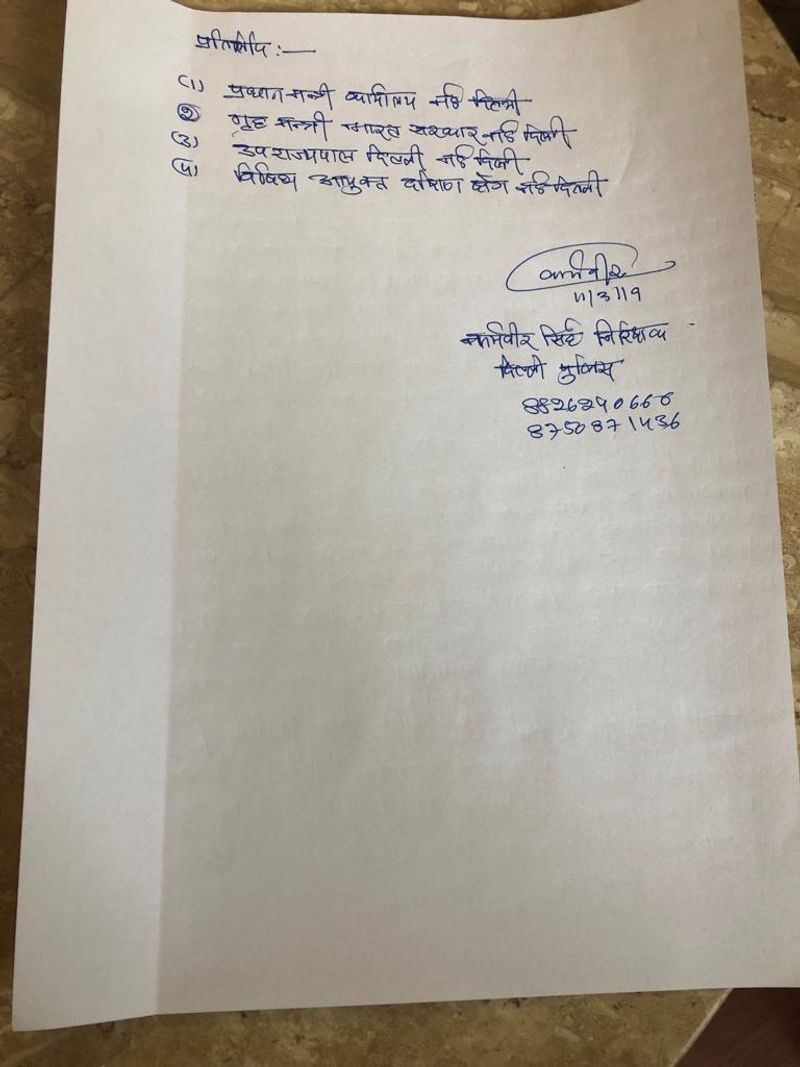 प्रतिलिपि :—
(1) प्रधान मन्त्री कार्यालय नई दिल्ली
(2) गृह मन्त्री भारत सरकार नई दिल्ली
(3) उपराज्यपाल दिल्ली नई दिल्ली
(4) विशिष आयुक्त दक्षिण क्षेत्र नई दिल्ली
कर्मवीर
11/3/19
कर्मवीर सिंह निरिक्षक
दिल्ली पुलिस
8826240666
8750871436